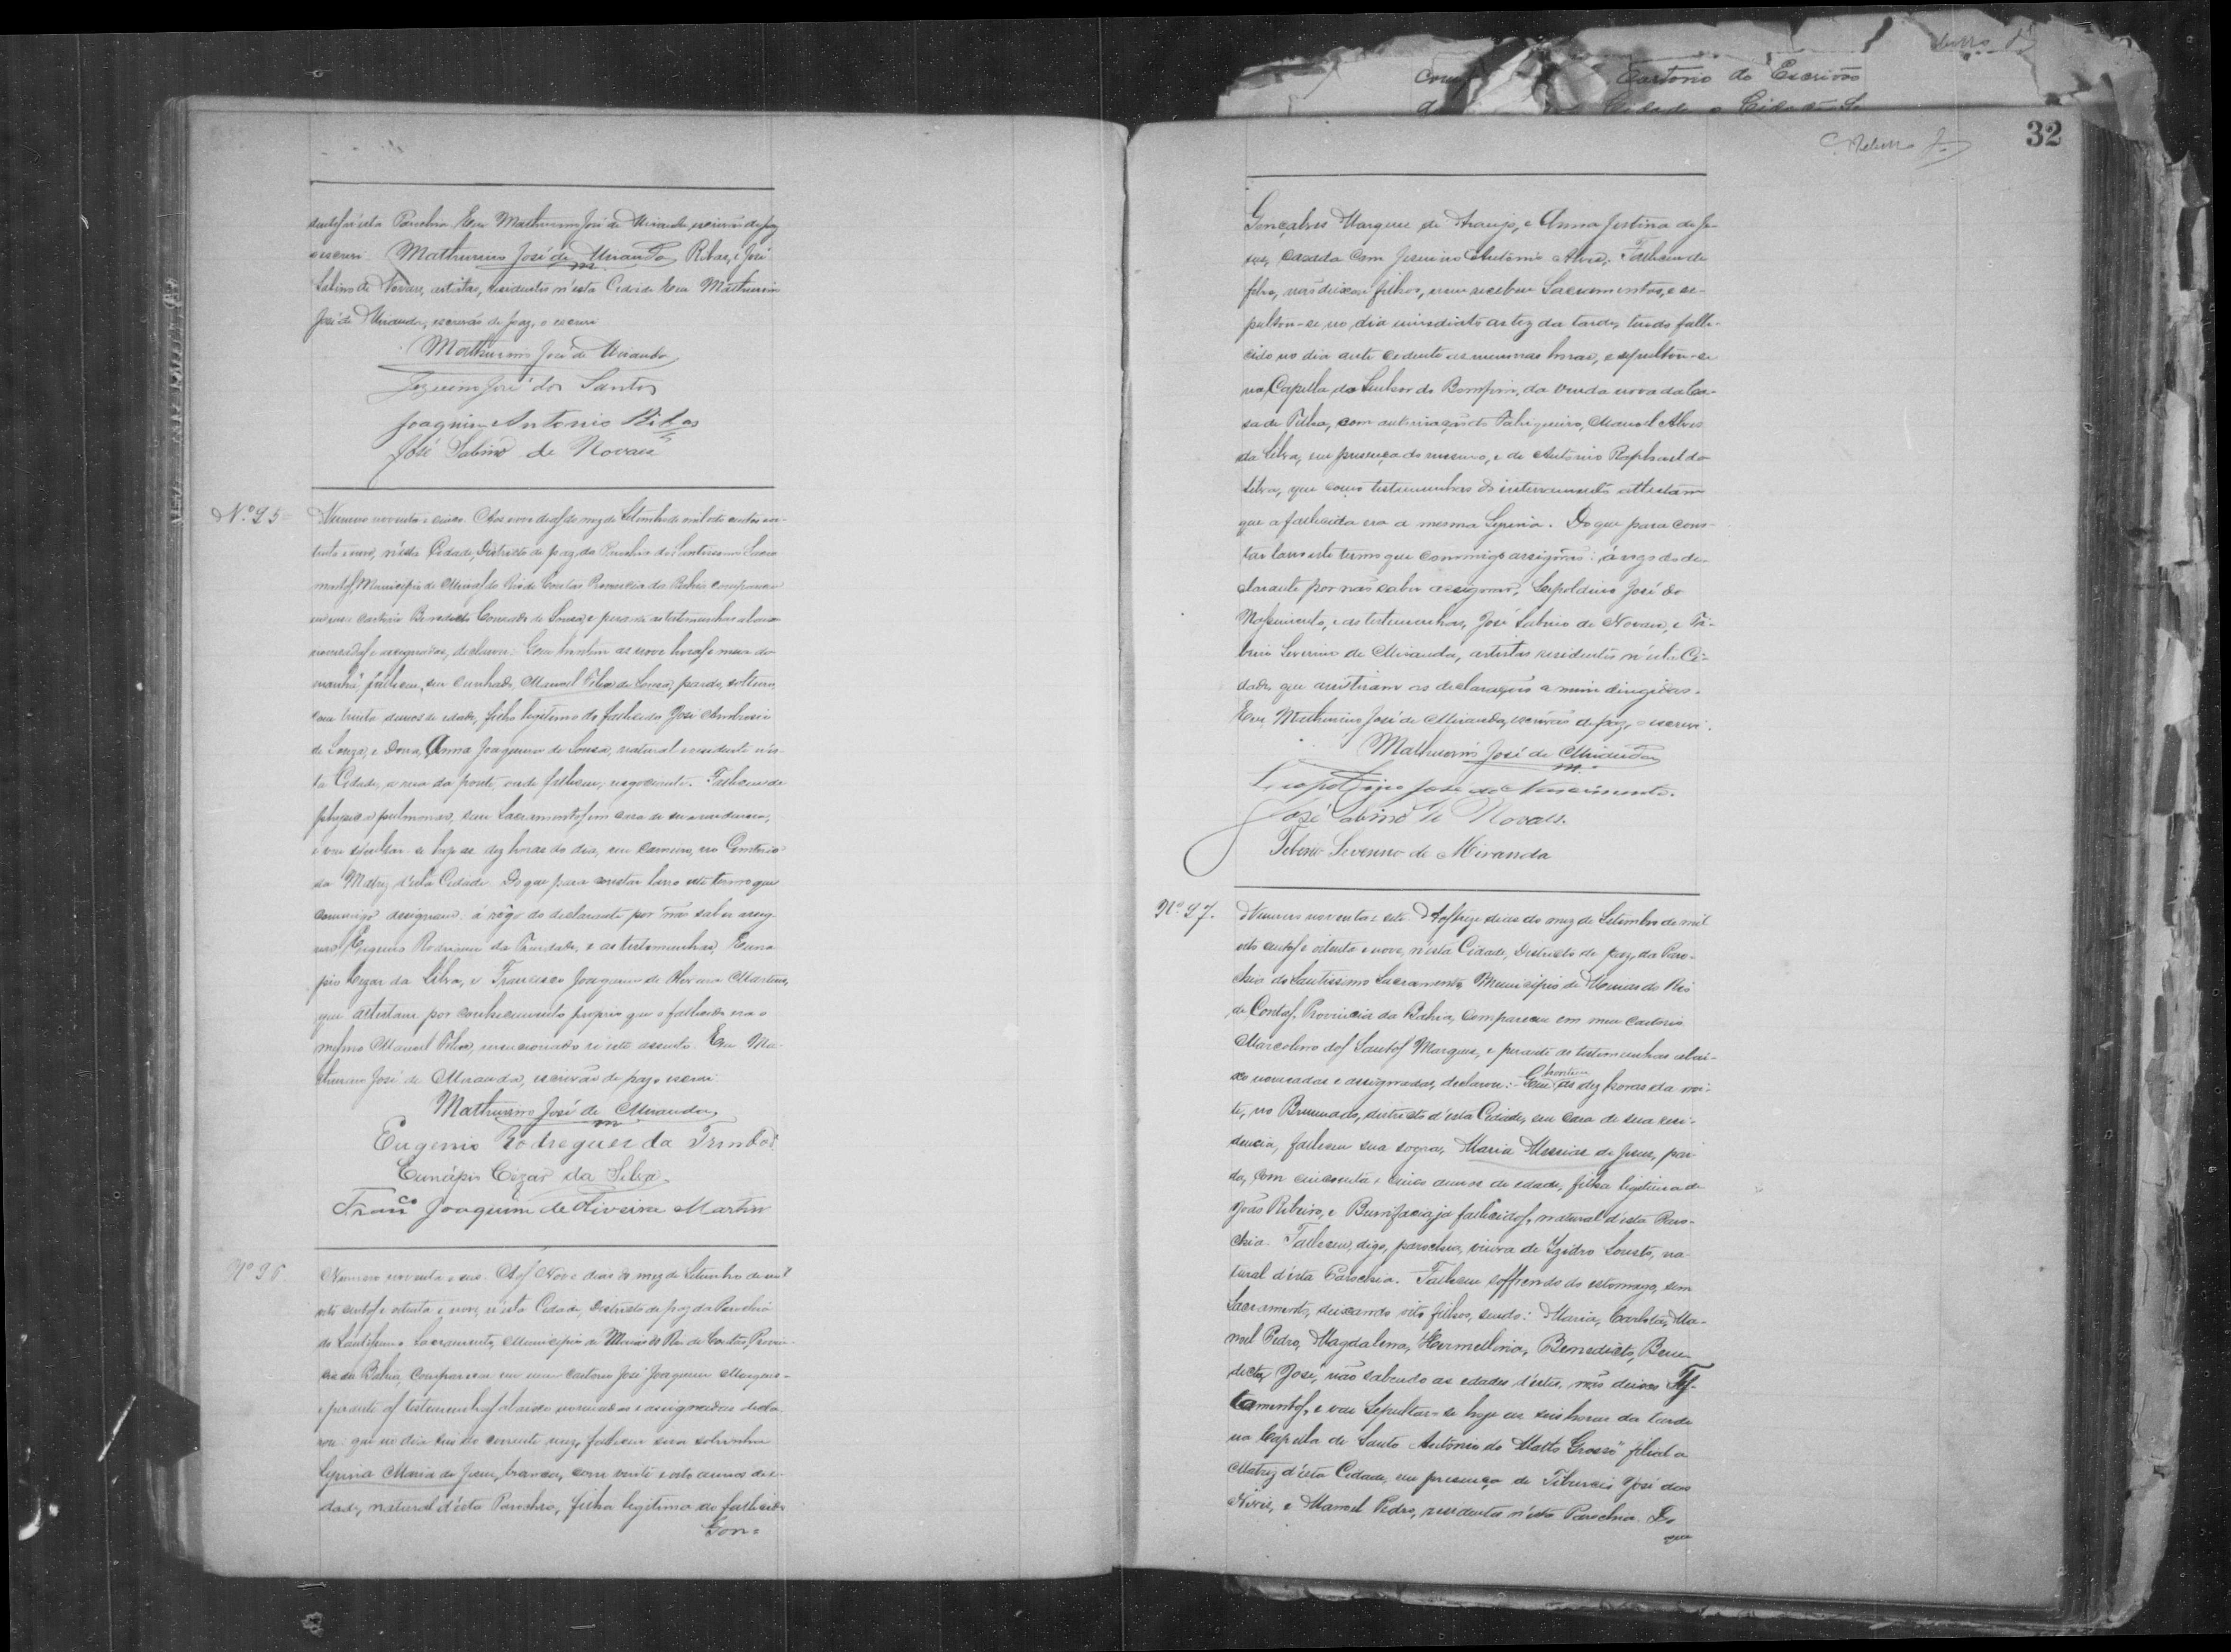 dentes n'esta Parochia. Eu Mathurino José de Miranda, escrivão de paz
o escrevi. Mathurino José de Miranda Ribas, e José
Sabino de Novaes, artistas, residentes n'esta Cidade Eu Mathurino
José de Miranda, escrivão de paz, o escrevi
Mathurino José de Miranda
José dos Santos
Joaquim Antonio Ribas
José Sabino de Novaes
N.º 95
Numero noventa e cinco. Aos nove dias do mez de Setembro de mil oito centos oi-
tenta e nove, n'esta Cidade, Districto de paz, da Parochia do Santissimo Sacra
mento, Municipio de Minas do Rio de Contas Provincia da Bahia, compareceu
em meu cartorio Benedicto Conrado de Souza, e perante as testemunhas abaixo
nomeadas e assignadas, declarou: Que hontem as nove horas e meia da
manhã falleceu, seu cunhado, Manoel Felix de Souza, pardo, solteiro,
com trinta annos de edade, filho legitimo do fallecido José Ambrosio
de Souza, e Dona, Anna Joaquina de Souza, natural e residente n'es-
ta Cidade, a rua da ponte, onde falleceu, negociante. Falleceu de
pulmonar, sem Sacramentos em casa de sua residencia,
e vae sepultar-se hoje as dez horas do dia, em carneiro, no Cemiterio
da Matriz d'esta Cidade. Do que para constar lavro este termo que
commigo assignam: á rogo do declarante por não saber assig-
nar, Eugenio Rodrigues da Trindade, e as testemunhas, Euna-
pio Cezar da Silva, e Francisco Joaquim de Oliveira Martins,
que attestam por conhecimento proprio que o fallecido era o
mesmo Manoel Felix, mencionado n'este assento. Eu Ma-
thurino José de Miranda, escrivão de paz o escrevi
Mathurino José de Miranda
Eugenio Rodregues da Trindad.ᵉ
Eunápio Cezar da Silva
Fran.co Joaquim de Oliveira Martins
Nº 96.
Numero noventa e seis. Aos Nove dias do mez de Setembro de mil
oito centos e oitenta e nove, n'esta Cidade, Districto de paz da Parochia
do Santissimo Sacramento, Municipio de Minas do Rio de Contas, Provin-
cia da Bahia, Compareceu em meu cartorio José Joaquim Marques
e perante as testemunhas abaixo nomeadas e assignadas decla-
rou: que no dia seis do corrente mez, falleceu sua sobrinha
Maria de Jesus, branca, com vinte e oito annos de e-
dade, natural d'esta Parochia, filha legitima do fallecido
Gon=
32
Gonçalves Marques de Araujo, e Anna Justina de Je-
sus, casada com Jesuino Antonio Alves. Falleceu de
febre, não deixou filhos, nem recebeu Sacramentos, e se-
pultou-se no dia immediato as tez da tarde, tendo falle-
cido no dia ante cedente as mesmas horas, e sepultou-se
na Capella do Senhor do Bomfim, da Venda nova da Ca-
sa de Telha, com autorisação do Fabriqueiro, Manoel Alves
da Silva, em presença do mesmo, e de Antonio Raphael da
Silva, que como testemunhas do interramento attestam
que a fallecida era a mesma. Do que para cons-
tar lavro este termo que commigo assignão: á rogo do de-
clarante por não saber assignar, Leopoldino José do
Nascimento, e as testemunhas, José Sabino de Novaes, e Ti-
burio Severino de Miranda, artistas residentes n'esta Ci-
dade, que assistiram as declarações a mim dirigidas.
Eu, Mathurino José de Miranda, escrivão de paz, o escrevi.
Mathurino José de Miranda
Leopoldino José do Nascimento.
José Sabino de Novaes.
Severino de Miranda
Nº 97.
Numero noventa e sete. Aos treze dias do mez de Setembro de mil
oito centos e oitenta e nove, n'esta Cidade, Districto de paz, da Paro-
chia do Santissimo Sacramento, Municipio de Minas do Rio
de Contas, Provincia da Bahia, Compareceu em meu cartorio
Marcolino dos Santos Marques, e perante as testemunhas abai-
xo nomeadas e assignadas, declarou: Que hontem as dez horas da noi-
te, no Brumado, districto d'esta Cidade, em casa de sua resi-
dencia, falleceu sua sogra, Maria Messias de Jesus, par-
da, com cincoenta e cinco annos de edade, filha legitima de
João Ribeiro, e Bunifacia já fallecidos, natural d'esta Paro-
chia. Falleceu, digo, parochia, viuva de Izidro, na-
tural d'esta Parochia. Falleceu soffrendo do estomago, sem
Sacramento, deixando oito filhos, sendo: Maria, Carlota, Ma-
noel Pedro, Magdalena, Hermellina, Benedicto, Bene-
dicta, José, não sabendo as edades d'estes, não deixou Tes-
tamentos, e vae Sepultar-se hoje as seis horas da tarde
na Capella de Santo Antonio do Matto Grosso filial a
Matriz d'esta Cidade, em presença de Tiburcio José das
Neves, e Manoel Pedro, residentes n'esta Parochia. Do
que
Cartorio do Escrivão